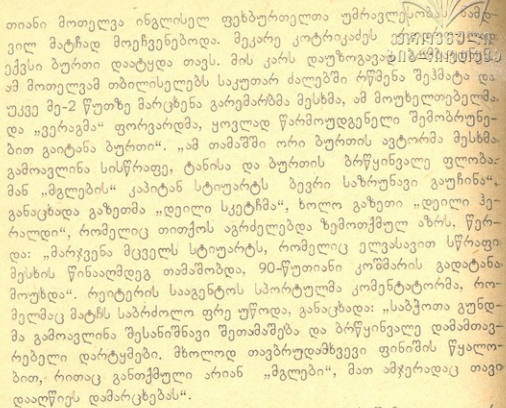 თიანი მოთელვა ინგლისელ ფეხბურთელთა უმრავლესობას ნამდ-
ვილ მატჩად მოეჩვენებოდა. მეკარე კოტრიკაძეს
ექვსი ბურთი დაატყდა თავს. მის კარს დაუზოგავად
ამ მოთელვამ თბილისელებს საკუთარ ძალებში რწმენა შეჰმატა და
უკვე მე-2 წუთზე მარცხენა გარემარბმა მესხმა, ამ მოუხელთებელმა
და „ვერაგმა“ ფორვარდმა, ყოვლად წარმოუდგენელი შემობრუნე-
ბით გაიტანა ბურთი“. „ამ თამაშში ორი ბურთის ავტორმა მესხმა
გამოავლინა სისწრაფე, ტანისა და ბურთის ბრწყინვალე ფლობა.
მან „მგლების“ კაპიტან სტიუარტს ბევრი საზრუნავი გაუჩინა“,
განაცხადა გაზეთმა „დეილი სკეტჩმა“, ხოლო გაზეთი „დეილი ჰე-
რალდი“, რომელიც თითქოს აგრძელებდა ზემოთქმულ აზრს, წერ-
და: „მარჯვენა მცველს სტიუარტს, რომელიც ელვასავით სწრაფი
მესხის წინააღმდეგ თამაშობდა, 90-წუთიანი კოშმარის გადატანა
მოუხდა“. რეიტერის სააგენტოს სპორტულმა კომენტატორმა, რო-
მელმაც მატჩს საბრძოლო ფრე უწოდა, განაცხადა: „საბჭოთა გუნდ-
მა გამოავლინა შესანიშნავი შეთამაშება და ბრწყინვალე დამამთავ-
რებელი დარტყმები. მხოლოდ თავბრუდამხვევი ფინიშის წყალო-
ბით, რითაც განთქმული არიან „მგლები“, მათ ამჯერადაც თავი
დააღწიეს დამარცხებას“.